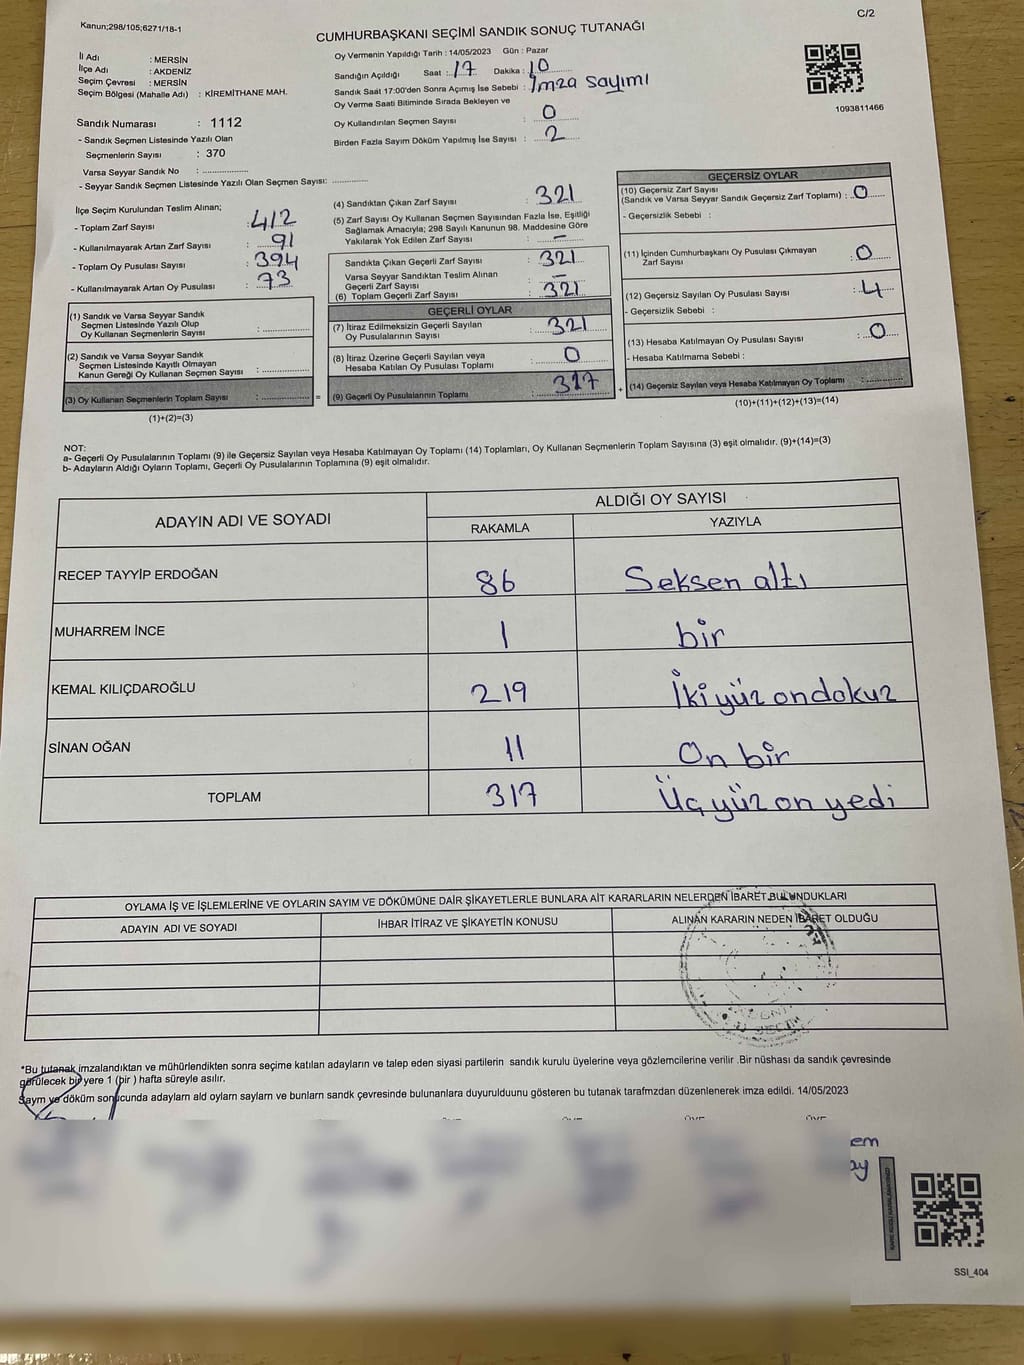 Kanun;298/105;6271/18-1
C/2
CUMHURBAŞKANI SEÇİMİ SANDIK SONUÇ TUTANAĞI
İl Adı : MERSİN
İlçe Adı : AKDENİZ
Seçim Çevresi : MERSİN
Seçim Bölgesi (Mahalle Adı) : KİREMİTHANE MAH.
Oy Vermenin Yapıldığı Tarih : 14/05/2023 Gün : Pazar
Sandığın Açıldığı Saat : 17 Dakika : 10
Sandık Saat 17:00'den Sonra Açımış İse Sebebi : İmza sayımı
Oy Verme Saati Bitiminde Sırada Bekleyen ve
Oy Kullandırılan Seçmen Sayısı : 0
Birden Fazla Sayım Döküm Yapılmış İse Sayısı : 2
1093811466
Sandık Numarası : 1112
- Sandık Seçmen Listesinde Yazılı Olan
Seçmenlerin Sayısı : 370
Varsa Seyyar Sandık No : ................
- Seyyar Sandık Seçmen Listesinde Yazılı Olan Seçmen Sayısı: .............
İlçe Seçim Kurulundan Teslim Alınan;
- Toplam Zarf Sayısı : 412
- Kullanılmayarak Artan Zarf Sayısı : 91
- Toplam Oy Pusulası Sayısı : 394
- Kullanılmayarak Artan Oy Pusulası : 73
(1) Sandık ve Varsa Seyyar Sandık
Seçmen Listesinde Yazılı Olup
Oy Kullanan Seçmenlerin Sayısı : ................
(2) Sandık ve Varsa Seyyar Sandık
Seçmen Listesinde Kayıtlı Olmayan
Kanun Gereği Oy Kullanan Seçmen Sayısı : ................
(3) Oy Kullanan Seçmenlerin Toplam Sayısı : ................ =
(1)+(2)=(3)
(4) Sandıktan Çıkan Zarf Sayısı : 321
(5) Zarf Sayısı Oy Kullanan Seçmen Sayısından Fazla İse, Eşitliği
Sağlamak Amacıyla; 298 Sayılı Kanunun 98. Maddesine Göre
Yakılarak Yok Edilen Zarf Sayısı : –
Sandıkta Çıkan Geçerli Zarf Sayısı : 321
Varsa Seyyar Sandıktan Teslim Alınan
Geçerli Zarf Sayısı : –
(6) Toplam Geçerli Zarf Sayısı : 321
GEÇERLİ OYLAR
(7) İtiraz Edilmeksizin Geçerli Sayılan
Oy Pusulalarının Sayısı : 321
(8) İtiraz Üzerine Geçerli Sayılan veya
Hesaba Katılan Oy Pusulası Toplamı : 0
(9) Geçerli Oy Pusulalarının Toplamı : 317 +
GEÇERSİZ OYLAR
(10) Geçersiz Zarf Sayısı
(Sandık ve Varsa Seyyar Sandık Geçersiz Zarf Toplamı) : 0
- Geçersizlik Sebebi :
(11) İçinden Cumhurbaşkanı Oy Pusulası Çıkmayan
Zarf Sayısı : 0
(12) Geçersiz Sayılan Oy Pusulası Sayısı : 4
- Geçersizlik Sebebi :
(13) Hesaba Katılmayan Oy Pusulası Sayısı : 0
- Hesaba Katılmama Sebebi :
(14) Geçersiz Sayılan veya Hesaba Katılmayan Oy Toplamı : ................
(10)+(11)+(12)+(13)=(14)
NOT:
a- Geçerli Oy Pusulalarının Toplamı (9) ile Geçersiz Sayılan veya Hesaba Katılmayan Oy Toplamı (14) Toplamları, Oy Kullanan Seçmenlerin Toplam Sayısına (3) eşit olmalıdır. (9)+(14)=(3)
b- Adayların Aldığı Oyların Toplamı, Geçerli Oy Pusulalarının Toplamına (9) eşit olmalıdır.
ADAYIN ADI VE SOYADI
ALDIĞI OY SAYISI
RAKAMLA YAZIYLA
RECEP TAYYİP ERDOĞAN 86 Seksen altı
MUHARREM İNCE 1 bir
KEMAL KILIÇDAROĞLU 219 İkiyüz ondokuz
SİNAN OĞAN 11 On bir
TOPLAM 317 Üçyüz on yedi
OYLAMA İŞ VE İŞLEMLERİNE VE OYLARIN SAYIM VE DÖKÜMÜNE DAİR ŞİKAYETLERLE BUNLARA AİT KARARLARIN NELERDEN İBARET BULUNDUKLARI
ADAYIN ADI VE SOYADI İHBAR İTİRAZ VE ŞİKAYETİN KONUSU ALINAN KARARIN NEDEN İBARET OLDUĞU
*Bu tutanak imzalandıktan ve mühürlendikten sonra seçime katılan adayların ve talep eden siyasi partilerin sandık kurulu üyelerine veya gözlemcilerine verilir .Bir nüshası da sandık çevresinde
görülecek bir yere 1 (bir ) hafta süreyle asılır.
Saym ve döküm sonucunda adaylarn ald oylarn saylarn ve bunlarn sandk çevresinde bulunanlara duyurulduunu gösteren bu tutanak tarafmzdan düzenlenerek imza edildi. 14/05/2023
SSI_404